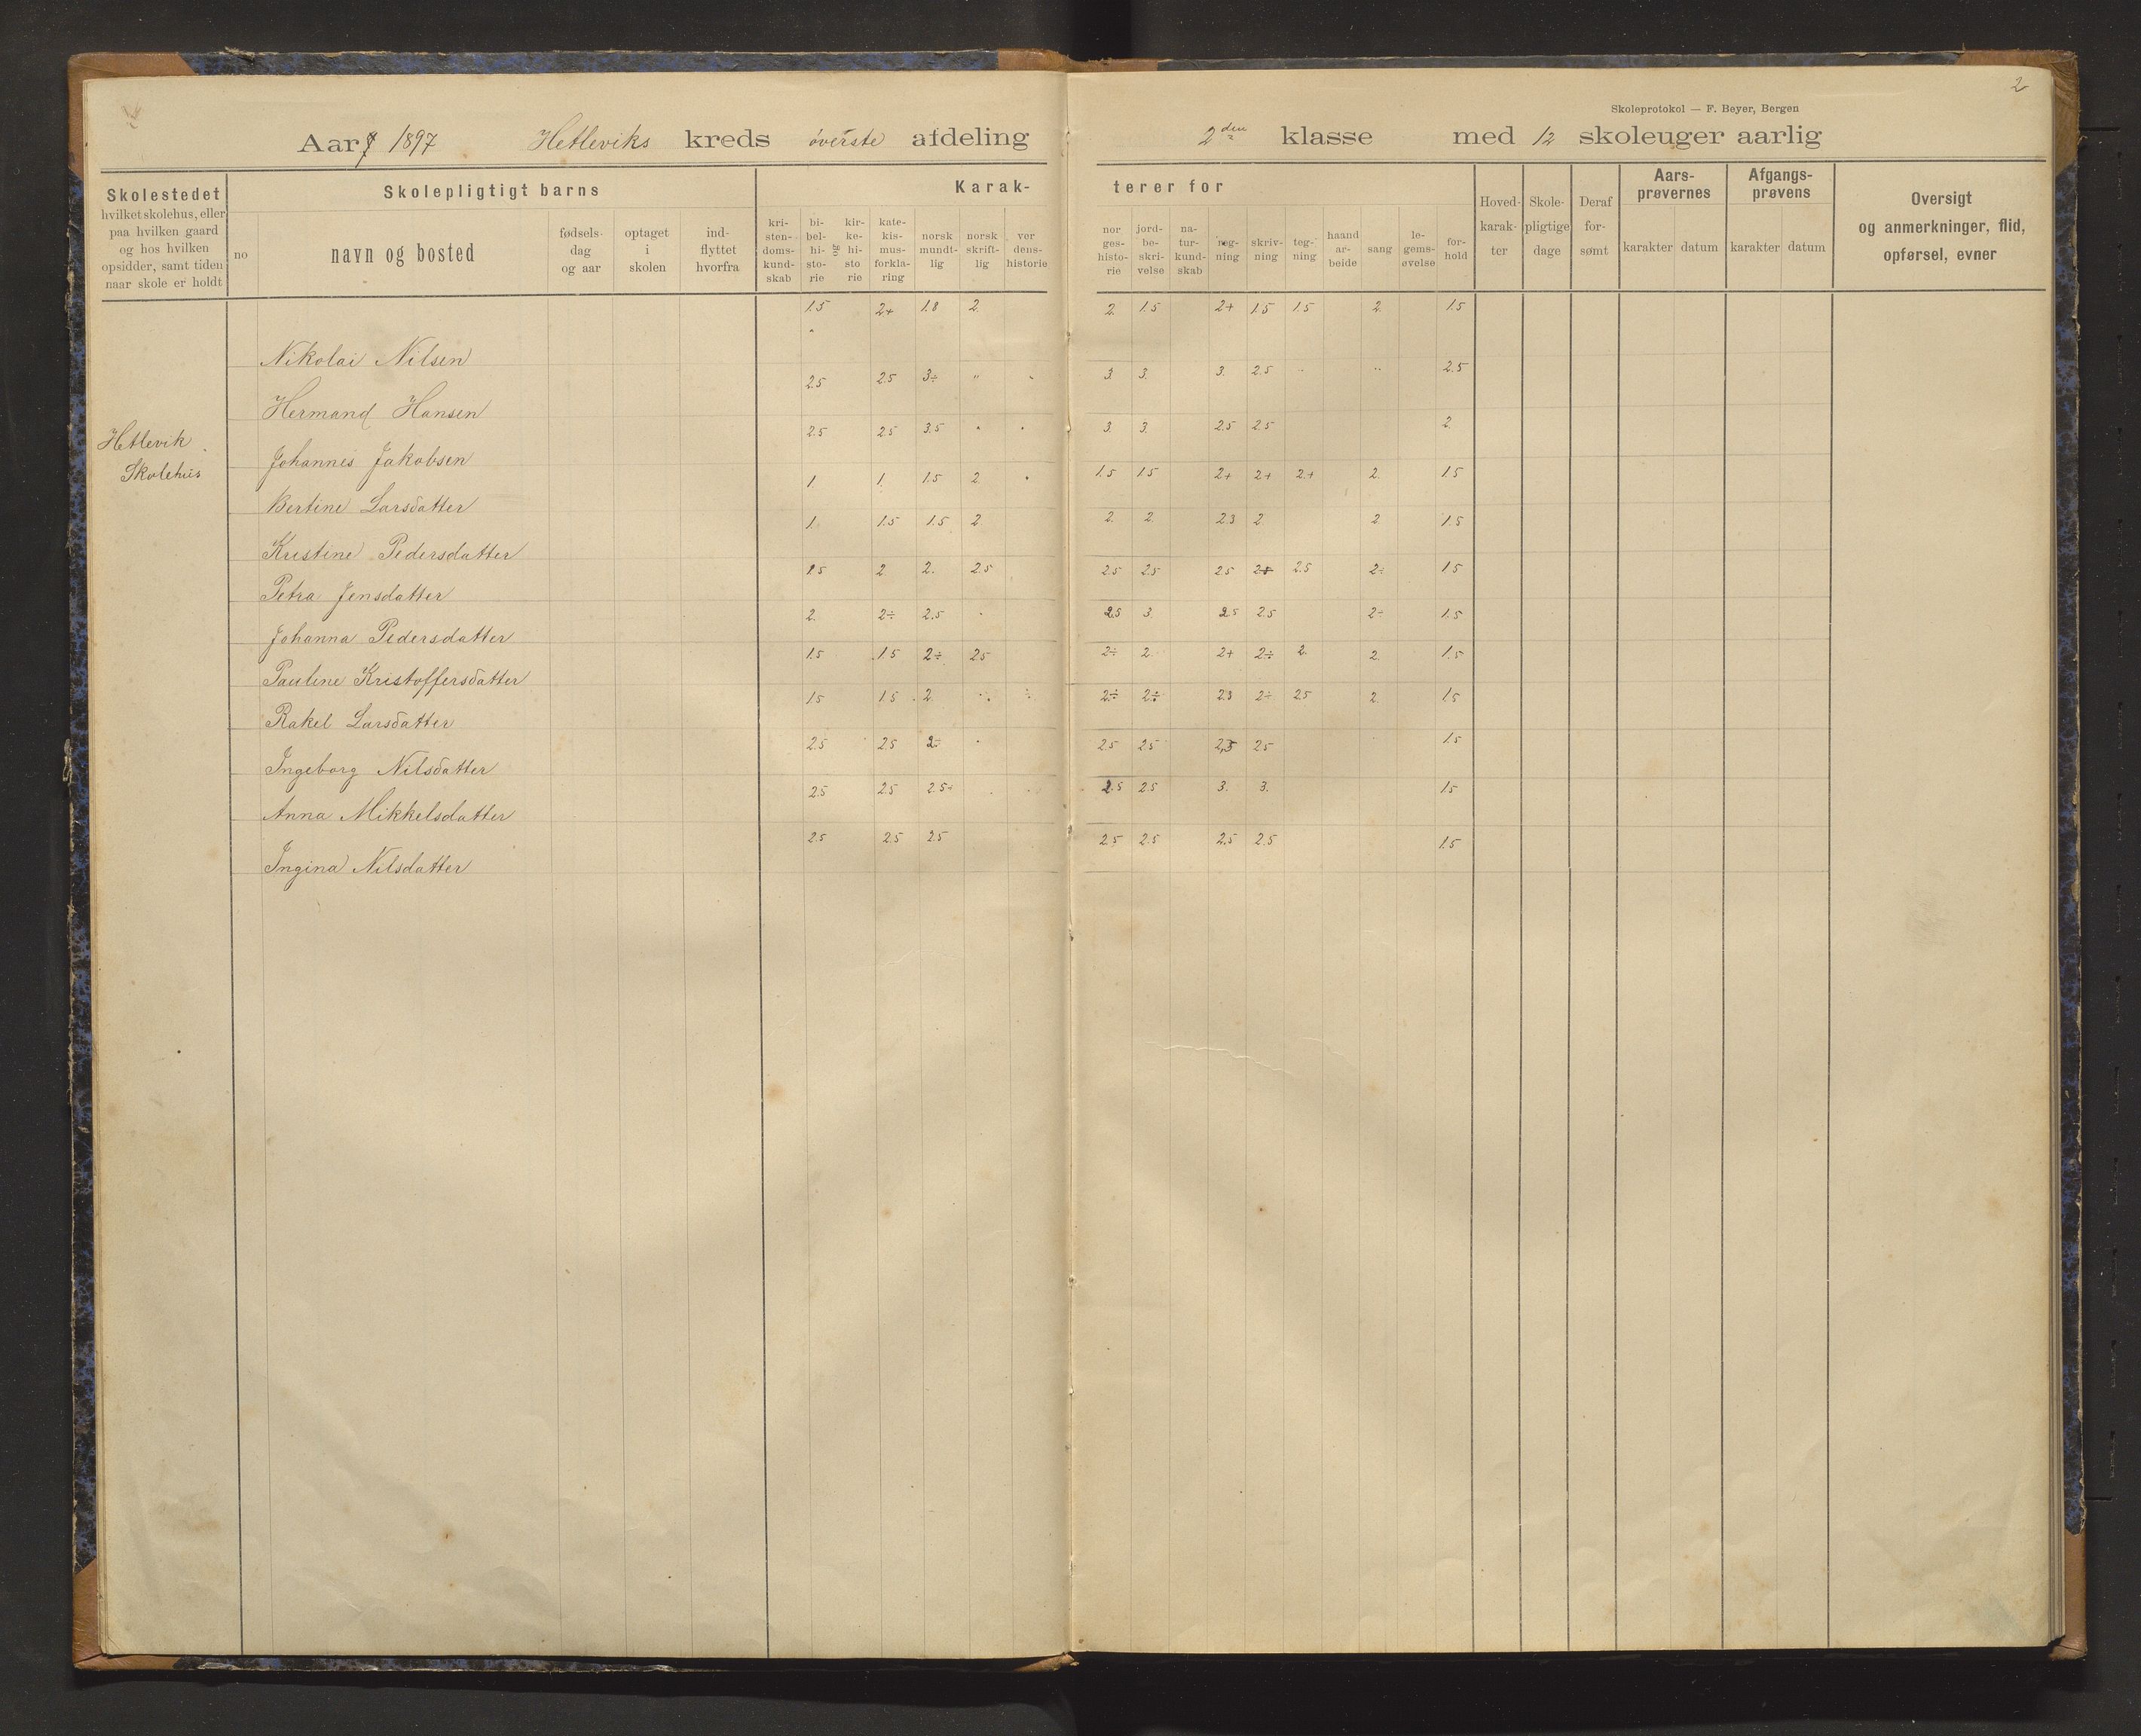 2
Skoleprotokol — F. Beyer, Bergen
Aar 1897 Hetleviks kreds øverste afdeling 2den klasse med 12 skoleuger aarlig
Skolestedet
hvilket skolehus, eller
paa hvilken gaard
og hos hvilken
opsidder, samt tiden
naar skole er holdt
Skolepligtigt barns
no
navn og bosted
fødsels-
dag
og aar
optaget
i
skolen
ind-
flyttet
hvorfra
Karak-
kri-
sten-
doms-
kund-
skab
bi-
bel-
hi-
sto-
rie
og
kir-
ke-
hi-
sto
rie
kate-
kis-
mus-
forkla-
ring
norsk
mundt-
lig
norsk
skrift-
lig
ver
dens-
historie
terer for
nor
ges-
histo-
rie
jord-
be-
skri-
velse
na-
tur-
kund-
skab
reg-
ning
skriv-
ning
teg-
ning
haand
ar-
beide
sang
le-
gems-
øvelse
for-
hold
Hoved-
karak-
ter
Skole-
pligtige
dage
Deraf
for-
sømt
Aars-
prøvernes
karakter datum
Afgangs-
prøvens
karakter datum
Oversigt
og anmerkninger, flid,
opførsel, evner
Hetlevik
Skolehus
Nikolai Nilsen 1.5 2+ 1.8 2. 2. 1.5 2+ 1.5 1.5 2. 1.5
Hermand Hansen 2.5 2.5 3÷ " " 3. 3. 3. 2.5 " " 2.5
Johannes Jakobsen 2.5 2.5 3.5 " " 3. 3. 2.5 2.5 2.
Bertine Larsdatter 1 1. 1.5 2. 1.5 1.5 2+ 2+ 2+ 2. 1.5
Kristine Pedersdatter 1. 1.5 1.5 2 2. 2. 2.3 2. 2. 1.5
Petra Jensdatter 1.5 2. 2. 2.5 2.5 2.5 2.5 2.5 2÷ 1.5
Johanna Pedersdatter 2. 2÷ 2.5 2.5 3. 2.5 2.5 2÷ 1.5
Pauline Kristoffersdatter 1.5 1.5 2÷ 2.5 2÷ 2. 2+ 2÷ 2. 2. 1.5
Rakel Larsdatter 1.5 1.5 2. 2÷ 2÷ 2.3 2÷ 2.5 2. 1.5
Ingeborg Nilsdatter 2.5 2.5 2÷ 2.5 2.5 2,5 2.5 1.5
Anna Mikkelsdatter 2.5 2.5 2.5÷ 2.5 2.5 3. 3. 1.5
Ingina Nilsdatter 2.5 2.5 2.5 2.5 2.5 2.5 2.5 1.5